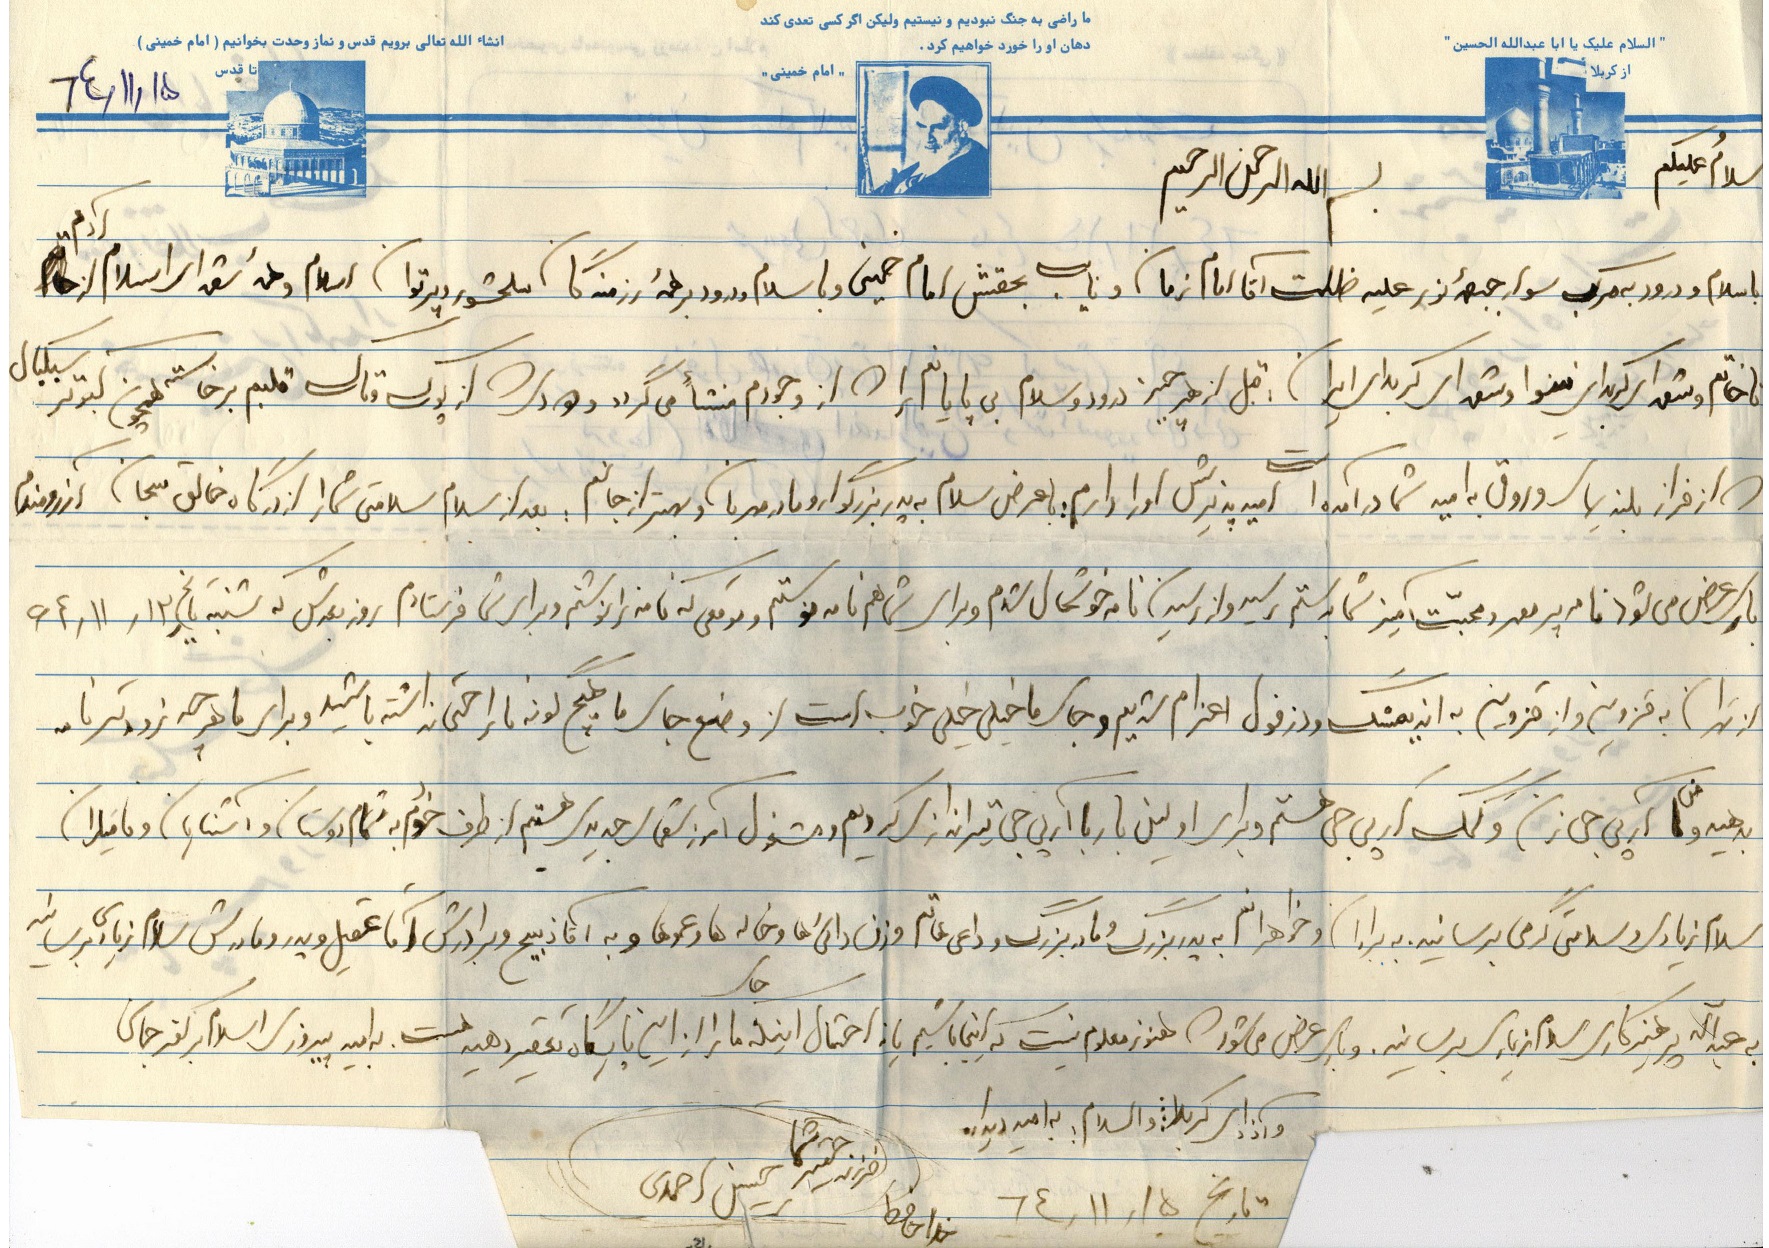 ما راضی به جنگ نبودیم و نیستیم ولیکن اگر کسی تعدی کند
دهان او را خورد خواهیم کرد .
" امام خمینی "
" السلام علیک یا ابا عبدالله الحسین "
از کربلا
انشاء الله تعالی برویم قدس و نماز وحدت بخوانیم ( امام خمینی )
تا قدس
٦٤/١١/١٥
سلامٌ علیکم
بسم الله الرحمن الرحیم
با سلام و درود به مرکب سوار جبههٔ نور علیه ظلمت آقا امام زمان و نایب بحقش امام خمینی و با سلام و درود بر همهٔ رزمندگان سلحشور و پرتوان اسلام و همهٔ شهدای اسلام از آدم
تا خاتم و شهدای کربلای نینوا و شهدای کربلای ایران ؛ قبل از هر چیز درود و سلام بی پایانم را که از وجودم منشأ می گردد و از قلبم برخاسته همچون کبوتر سبکبال
که از فراز بلند به امید شما در آمده است امید پذیرش او را دارم ؛ با عرض سلام به پدر بزرگوار و مادر مهربان و بهتر از جانم ؛ بعد از سلام سلامتی شما را از درگاه خالق سبحان آرزومندم
باری عرض می شود نامه پر مهر و محبّت آمیز شما بدستم رسید و از رسیدن نامه خوشحال شدم و برای شما هم نامه نوشتم و موقعی که نامه را نوشتم و برای شما فرستادم روز بعدش که شنبه
از تهران به قزوین و از قزوین به اندیمشک و دزفول اعزام شدیم و جای ما خیلی خیلی خوب است از وضع جای ما هیچ گونه ناراحتی نداشته باشید و برای ما هر چه زودتر نامه
بدهید و من آر پی جی زن و کمک آر پی جی هستم و برای اولین بار با آر پی جی تیراندازی کردیم و مشغول آموزشهای جدیدی هستیم از طرف خودم به تمام دوستان و آشنایان و فامیلان
سلام زیادی و سلامتی گرمی برسانید . به برادران و خواهرانم به پدر بزرگ و مادر بزرگ و داعی هایم و زن دائی ها و خاله ها و عموها و به آقا ذبیح و برادرش آقا عقیل و پدر و مادرش سلام زیادی برسانید
به عبدالله پرهیزکاری سلام زیادی برسانید . و باری عرض می شود که هنوز معلوم نیست که اینجا باشیم یا نه احتمال اینکه ما را از این پایگاه تغییر جا دهید هست . به امید پیروزی اسلام بر کفر جهانی
و آزادی کربلا ؛ والسلام ؛ به امید دیدار
فرزند حقیر شما
حسین احمدی
خداحافظ
تاریخ ٦٤/١١/١٥